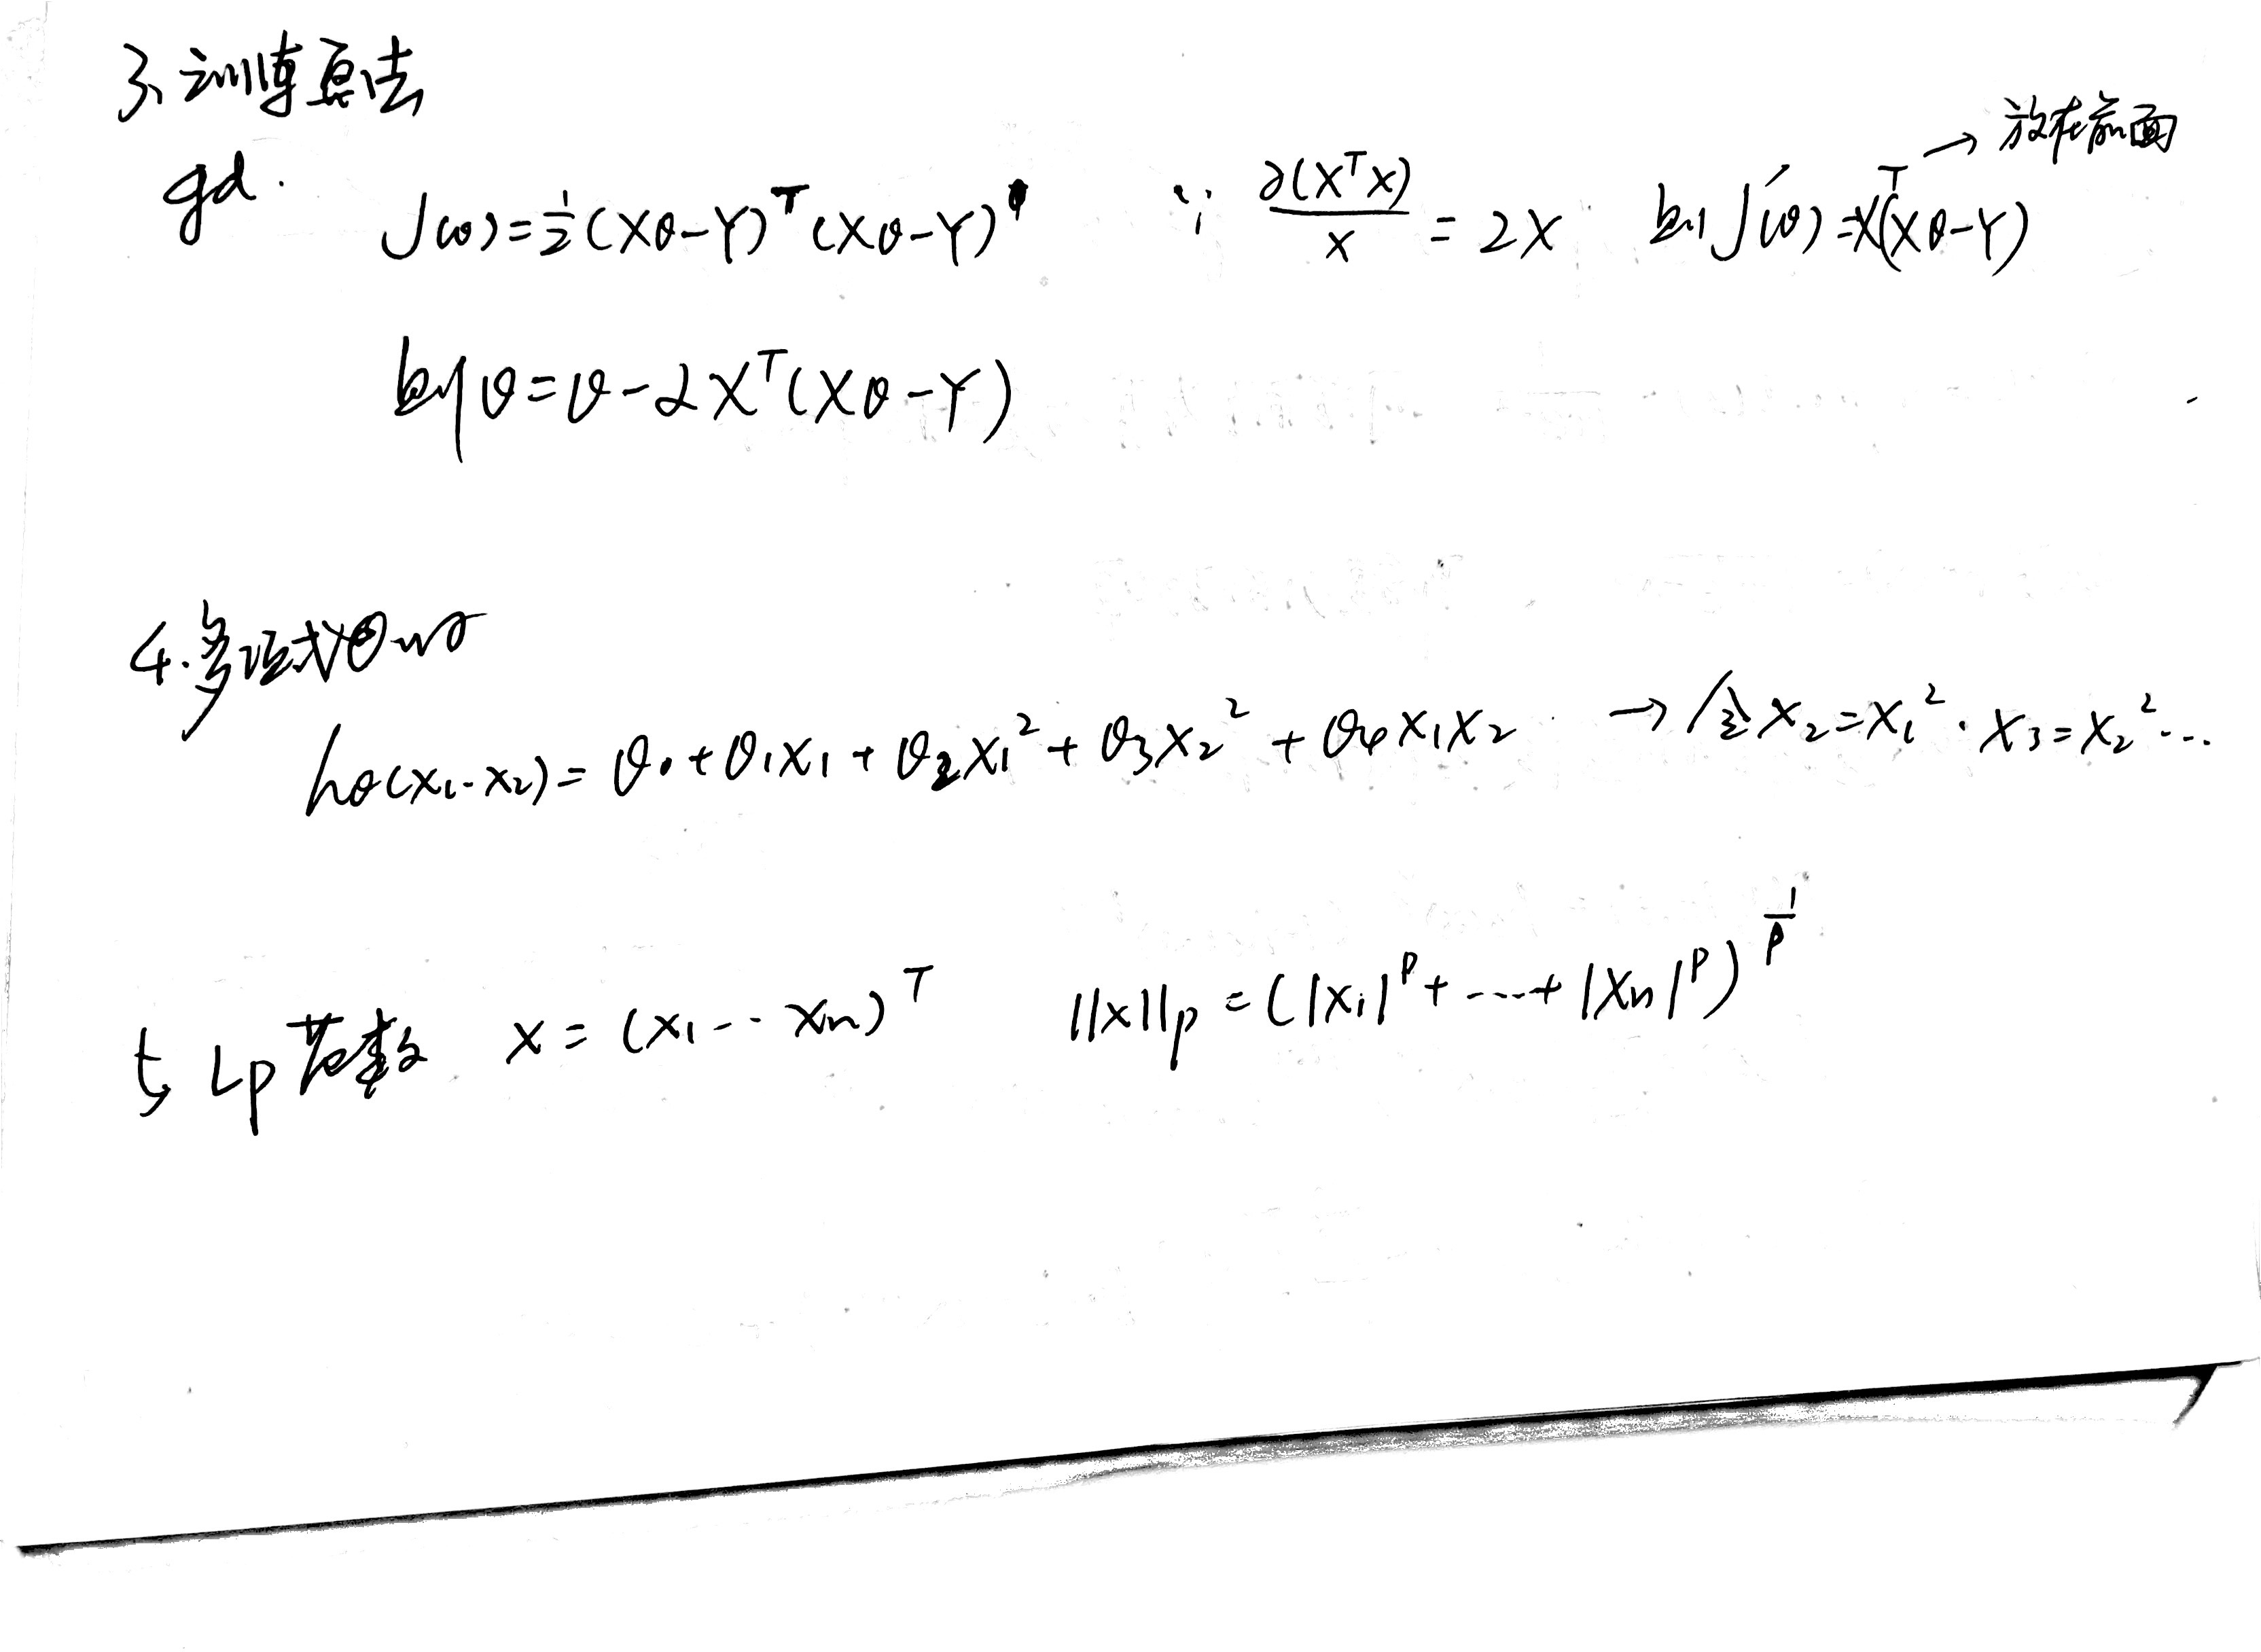 3、训练算法
gd. J(θ)=½(Xθ-Y)ᵀ(Xθ-Y) ∵ ∂(XᵀX)/X = 2X 则J'(θ)=Xᵀ(Xθ-Y) → 放在前面
则θ=θ-αXᵀ(Xθ-Y)
4.多项式回归
hθ(x₁.x₂)=θ₀+θ₁x₁+θ₂x₁²+θ₃x₂²+θ₄x₁x₂ →令x₂=x₁².x₃=x₂²...
5、Lp范数 x=(x₁--xₙ)ᵀ ||x||p=(|x₁|ᵖ+----+|xₙ|ᵖ)^(1/p)